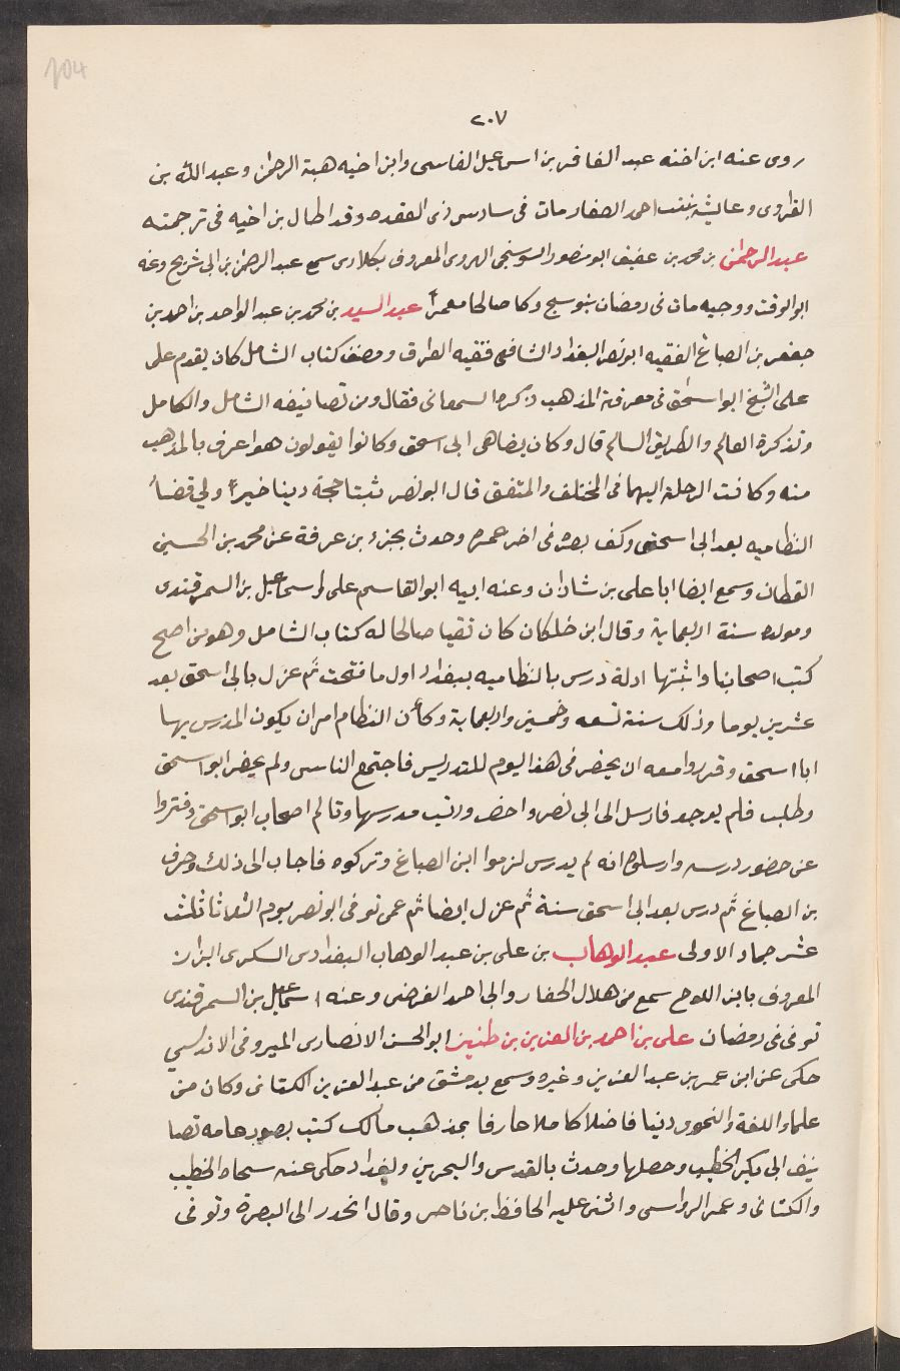 104
٢٠٧
روى عنه ابن اخته عبد الغافر بن اسماعيل الفاسى وابن اخيه هبة الرحمن وعبد الله بن
الفراوى وعايشة بنت احمد الصفار مات فى سادس ذى القعده وقد اطال بن اخيه فى ترجمته
عبد الرحمن بن محمد بن عفيف ابو منصور البوسنجى الهروى المعروف بكلارى سمع عبد الرحمن بن ابى شريح وعنه
ابو الوقت ووجيه مات فى رمضان ببوسنج وكا صالحا معمراً عبد السيد بن محمد بن عبد الواحد بن احمد بن
جعفر بن الصباغ الفقيه ابو نصر البغداد الشافعى فقيه العراق ومصنف كتاب الشامل كان يقدم على
على الشيخ ابو اسحق فى معرفة المذهب ذكره السمعانى فقال ومن تصانيفه الشامل والكامل
وتذكرة العالم والطريق السالم قال وكان يضاهى ابى اسحق وكانوا يقولون هو اعرف بالمذهب
منه وكانت الرحلة اليهما فى المختلف والمتفق قال ابو نصر ثبتا حجة دينا خيراً ولي قضا
النظاميه بعد ابى اسحق وكف بصره فى اخر عمره وحدث بجزء بن عرفة عن محمد بن الحسين
القطان وسمع ايضا ابا على بن شاذان وعنه ابيه ابو القاسم على واسماعيل بن السمرقندى
ومولده سنة اربعماية وقال ابن خلكان كان تقيا صالحا له كتاب الشامل وهو من اصح
كتب اصحابنا واثبتها ادلة درس بالنظاميه ببغداد اول ما فتحت ثم عزل بابى اسحق بعد
عشرين يوما وذلك سنة تسعه وخمسين واربعماية وكأن النظام امر ان يكون المدرس بها
ابا اسحق وقرروا معه ان يحضر فى هذا اليوم للتدريس فاجتمع الناس ولم يحضر ابو اسحق
وطلب فلم يوجد فارسل الى ابى نصر واحضر ورتب مدرسها وتالم اصحاب ابو اسحق وفتروا
عن حضور درسه وارسلوا انه لم يدرس لزموا ابن الصباغ وتركوه فاجاب الى ذلك وصرف
بن الصباغ ثم درس بعد ابى اسحق سنة ثم عزل ايضا ثم عمى توفى ابو نصر يوم الثلاثا ثلث
عشر جماد الاولى عبد الوهاب بن على بن عبد الوهاب البغدادى السكرى البزاز
المعروف بابن اللوح سمع من هلال الحفار وابى احمد الفرضى وعنه اسماعيل بن السمرقندى
توفى فى رمضان على بن احمد بن العزيز بن طنيز ابو الحسن الانصارى الميروفى الاندلسي
حكى عن ابن عمر بن عبد العزيز وغيره وسمع بدمشق من عبد العزيز الكتانى وكان من
علماء اللغة والنحو دينا فاضلا كاملا عارفا بمذهب مالك كتب بصور عامه تصا
نيف ابى بكر الخطيب وحصلها وحدث بالقدس والبحرين وبغداد حكى عنه سحاه الخطيب
والكتانى وعمر الرواسى واثنى عليه الحافظ بن ناصر وقال انحدر الى البصرة وتوفى